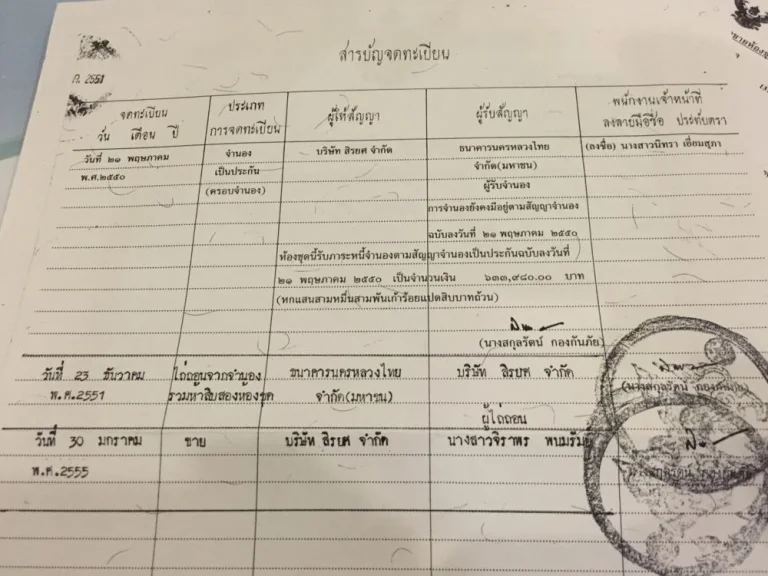 สารบัญจดทะเบียน
ค. 2551
จดทะเบียน
วัน เดือน ปี
ประเภท
การจดทะเบียน
ผู้ให้สัญญา
ผู้รับสัญญา
พนักงานเจ้าหน้าที่
ลงลายมือชื่อ ประทับตรา
วันที่ ๒๑ พฤษภาคม
พ.ศ.๒๕๕๐
จำนอง
เป็นประกัน
(ครอบจำนอง)
บริษัท สิรยศ จำกัด
ธนาคารนครหลวงไทย
จำกัด(มหาชน)
ผู้รับจำนอง
(ลงชื่อ) นางสาวนิทรา เอี่ยมสุภา
การจำนองยังคงมีอยู่ตามสัญญาจำนอง
ฉบับลงวันที่ ๒๑ พฤษภาคม ๒๕๕๐
ห้องชุดนี้รับภาระหนี้จำนองตามสัญญาจำนองเป็นประกันฉบับลงวันที่
๒๑ พฤษภาคม ๒๕๕๐ เป็นจำนวนเงิน ๖๓๓,๙๘๐.๐๐ บาท
(หกแสนสามหมื่นสามพันเก้าร้อยแปดสิบบาทถ้วน)
(นางสกุลรัตน์ กองกันภัย)
วันที่ 23 ธันวาคม
พ.ศ.2551
ไถ่ถอนจากจำนอง
รวมห้าสิบสองห้องชุด
ธนาคารนครหลวงไทย
จำกัด(มหาชน)
บริษัท สิรยศ จำกัด
ผู้ไถ่ถอน
(นางสกุลรัตน์ กองกันภัย)
วันที่ 30 มกราคม
พ.ศ.2555
ขาย
บริษัท สิรยศ จำกัด
นางสาวจิราพร พนมรัมย์